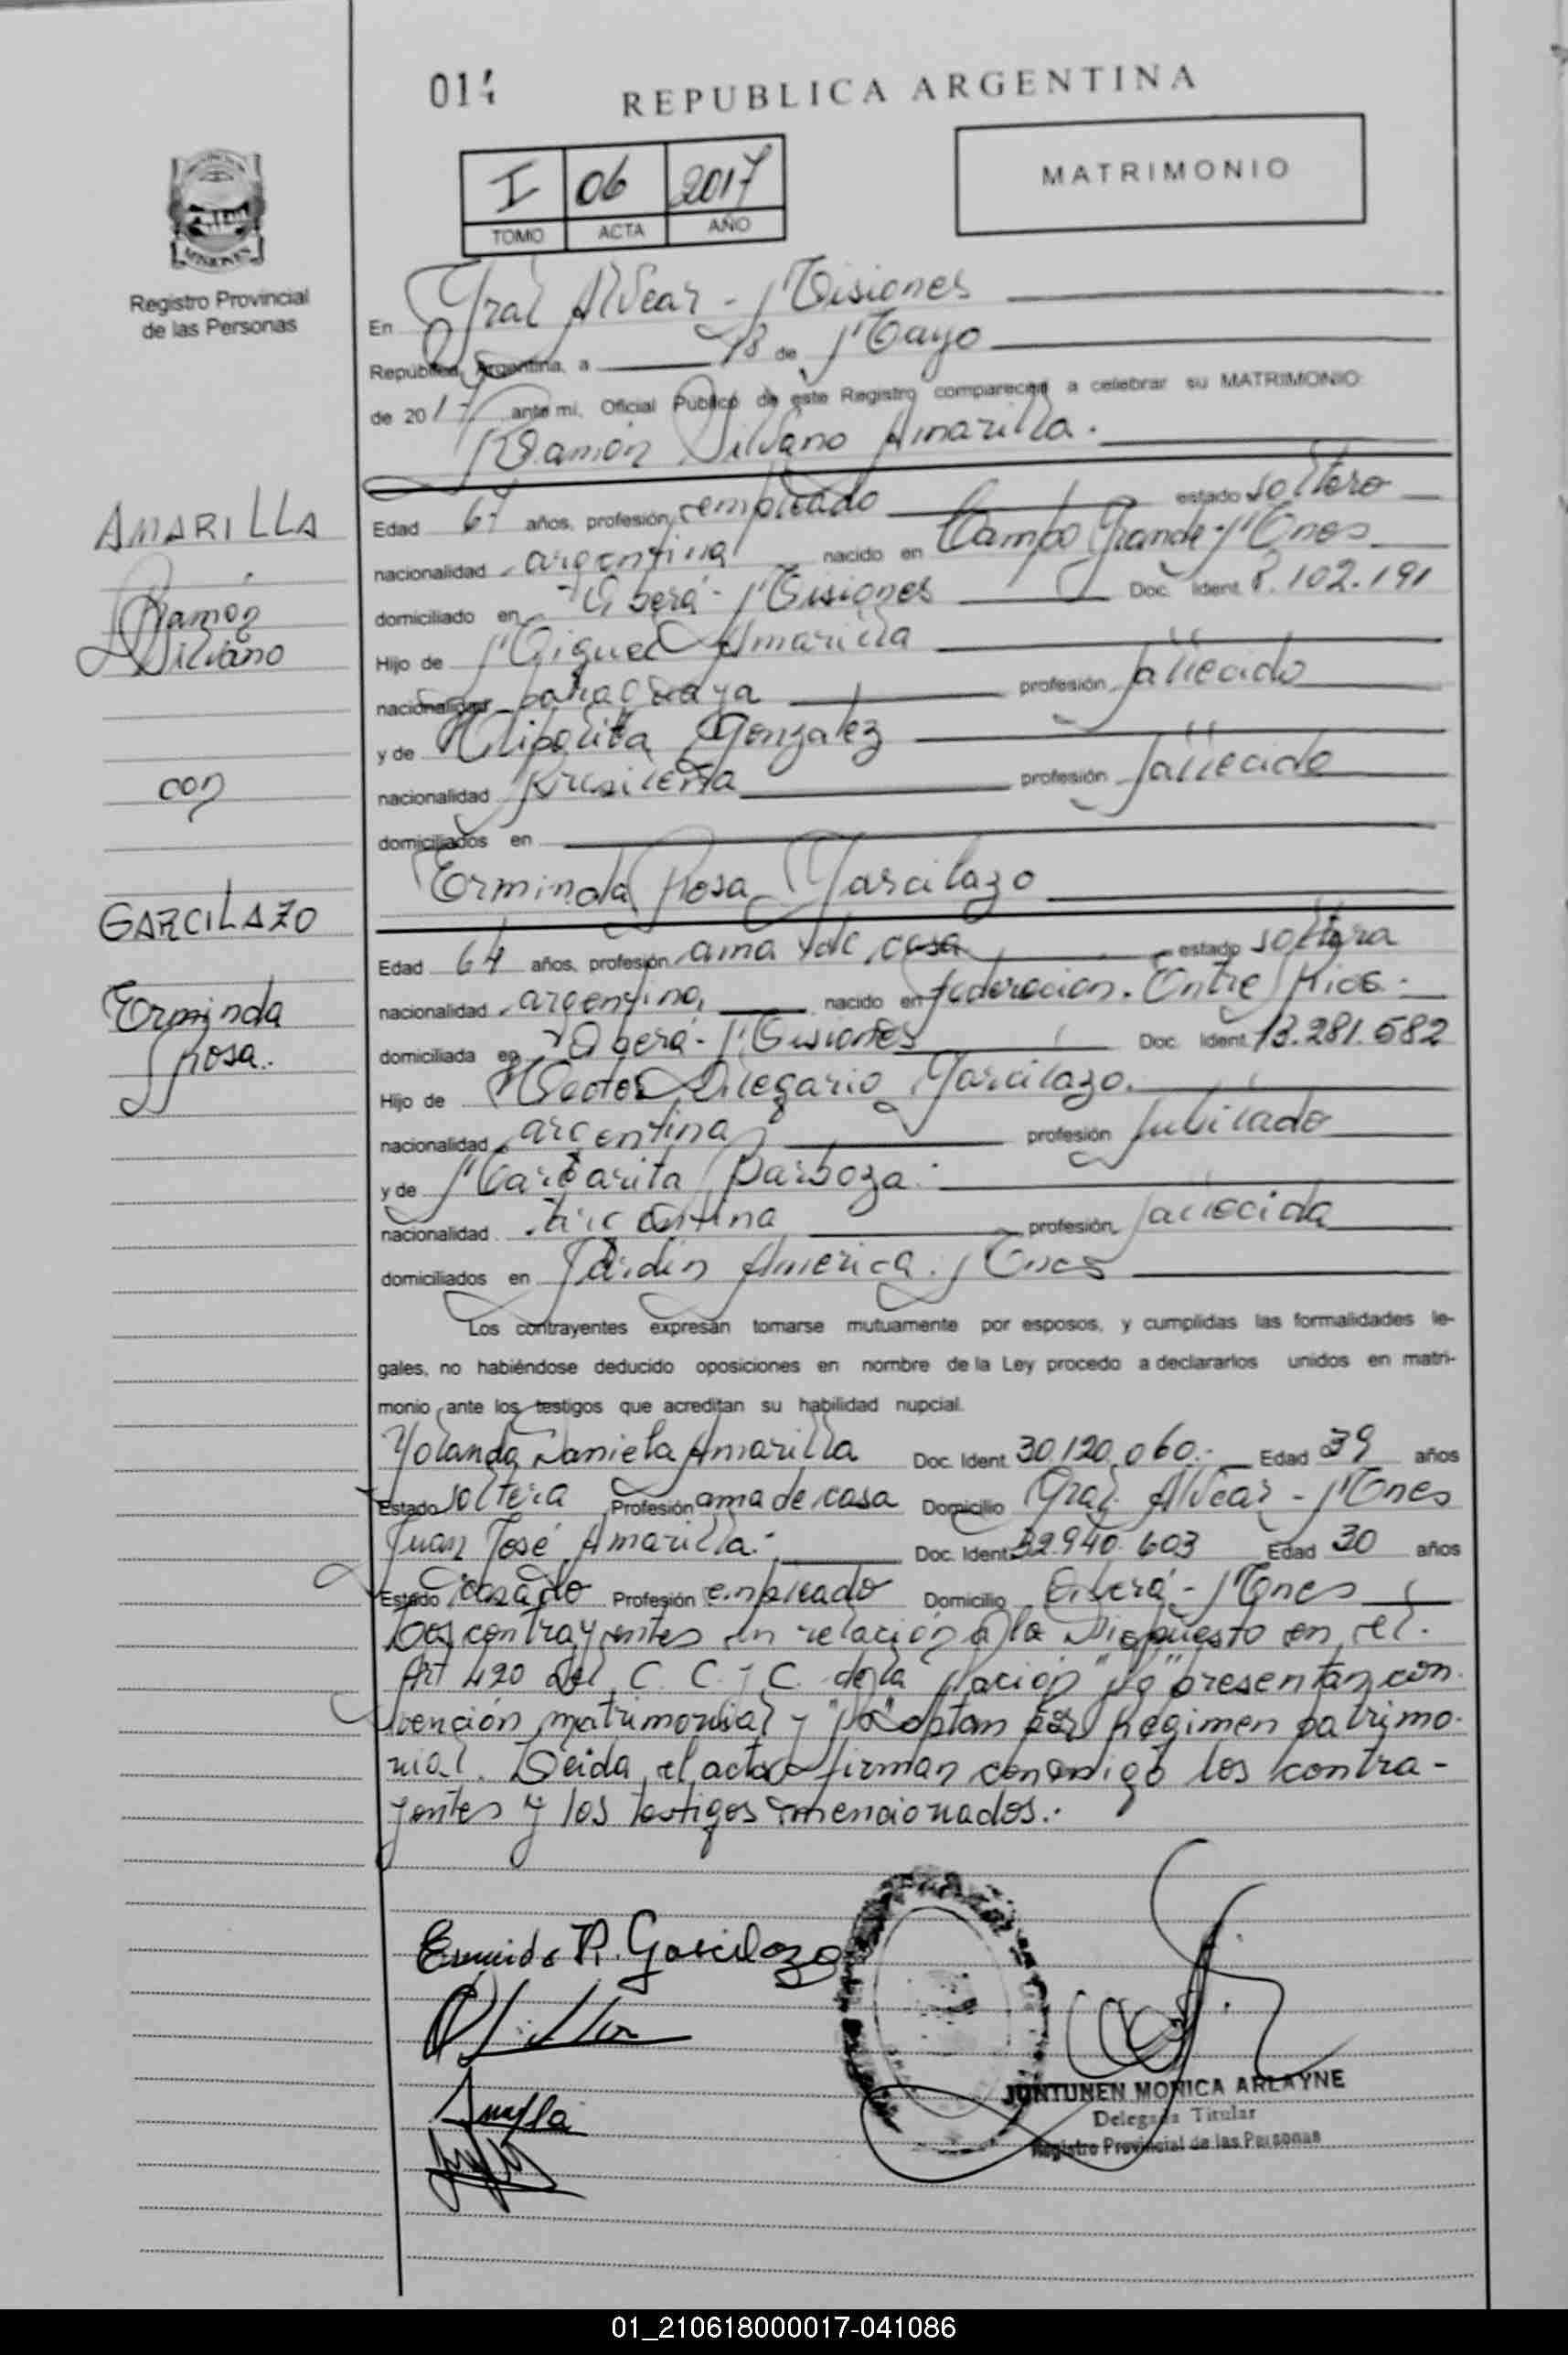 REPUBLICA ARGENTINA
MATRIMONIO
I 06 2017
TOMO ACTA AÑO
MISIONES
Registro Provincial
de las Personas
En Gral Alvear - Misiones
República Argentina, a 18 de Mayo
de 2017 ante mi, Oficial Público de este Registro comparecen a celebrar su MATRIMONIO:
Ramón Silvano Amarilla.
AMARILLA
Ramón
Silvano
con
GARCILAZO
Erminda
Rosa.
Edad 67 años, profesión empleado estado soltero
nacionalidad argentina nacido en Campo Grande - Mnes
domiciliado en Oberá - Misiones Doc. Ident. 8.102.191
Hijo de Miguel Amarilla
nacionalidad paraguaya profesión fallecido
y de Hipólita Gonzalez
nacionalidad brasileña profesión fallecido
domiciliados en
Erminda Rosa Garcilazo
Edad 64 años, profesión ama de casa estado soltera
nacionalidad argentina, nacido en Federación. Entre Rios.
domiciliada en Oberá - Misiones Doc. Ident. 13.281.582
Hijo de Hector Olegario Garcilazo.
nacionalidad argentina profesión jubilado
y de Margarita Barboza.
nacionalidad argentina profesión fallecida
domiciliados en Jardín América. Mnes
Los contrayentes expresan tomarse mutuamente por esposos, y cumplidas las formalidades le-
gales, no habiéndose deducido oposiciones en nombre de la Ley procedo a declararlos unidos en matri-
monio ante los testigos que acreditan su habilidad nupcial.
Yolanda Daniela Amarilla Doc. Ident. 30.120.060.- Edad 39 años
Estado soltera Profesión ama de casa Domicilio Gral. Alvear - Mnes
Juan José Amarilla.- Doc. Ident. 32.940.603 Edad 30 años
Estado casado Profesión empleado Domicilio Oberá - Mnes
Los contrayentes en relación a lo Dispuesto en el.
Art 420 del C. C. y C. de la Nación "No" presentan con
vención matrimonial y "No" optan por Régimen patrimo-
nial. Leída el acta firman conmigo los contra-
yentes y los testigos mencionados.-
Erminda R. Garcilazo
JUNTUNEN MONICA ARLAYNE
Delegada Titular
Registro Provincial de las Personas
01_210618000017-041086